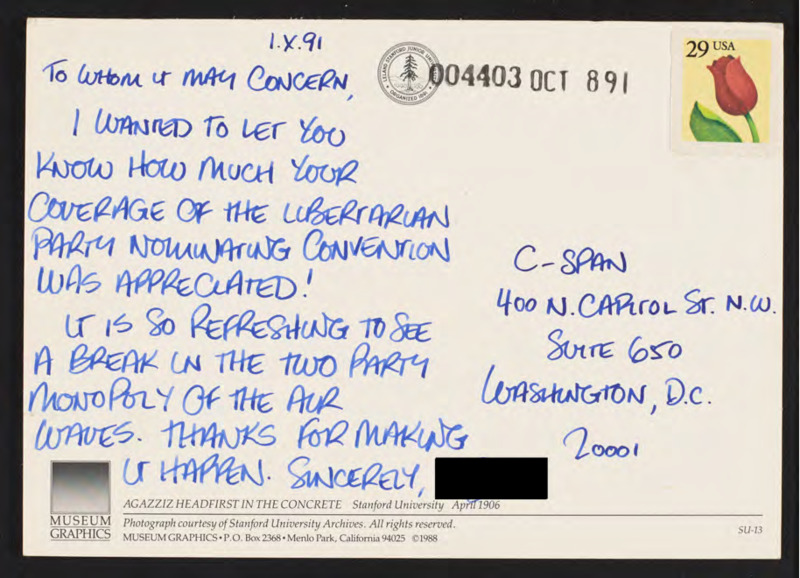 1.X.91
TO WHOM IT MAY CONCERN,
I WANTED TO LET YOU
KNOW HOW MUCH YOUR
COVERAGE OF THE LIBERTARIAN
PARTY NOMINATING CONVENTION
WAS APPRECIATED!
IT IS SO REFRESHING TO SEE
A BREAK IN THE TWO PARTY
MONOPOLY OF THE AIR
WAVES. THANKS FOR MAKING
IT HAPPEN. SINCERELY,
LELAND STANFORD JUNIOR UNIVERSITY
ORGANIZED 1891
004403 OCT 8 91
29 USA
C-SPAN
400 N. CAPITOL ST. N.W.
SUITE 650
WASHINGTON, D.C.
20001
MUSEUM
GRAPHICS
AGAZZIZ HEADFIRST IN THE CONCRETE Stanford University April 1906
Photograph courtesy of Stanford University Archives. All rights reserved.
MUSEUM GRAPHICS • P.O. Box 2368 • Menlo Park, California 94025 ©1988
SU-13